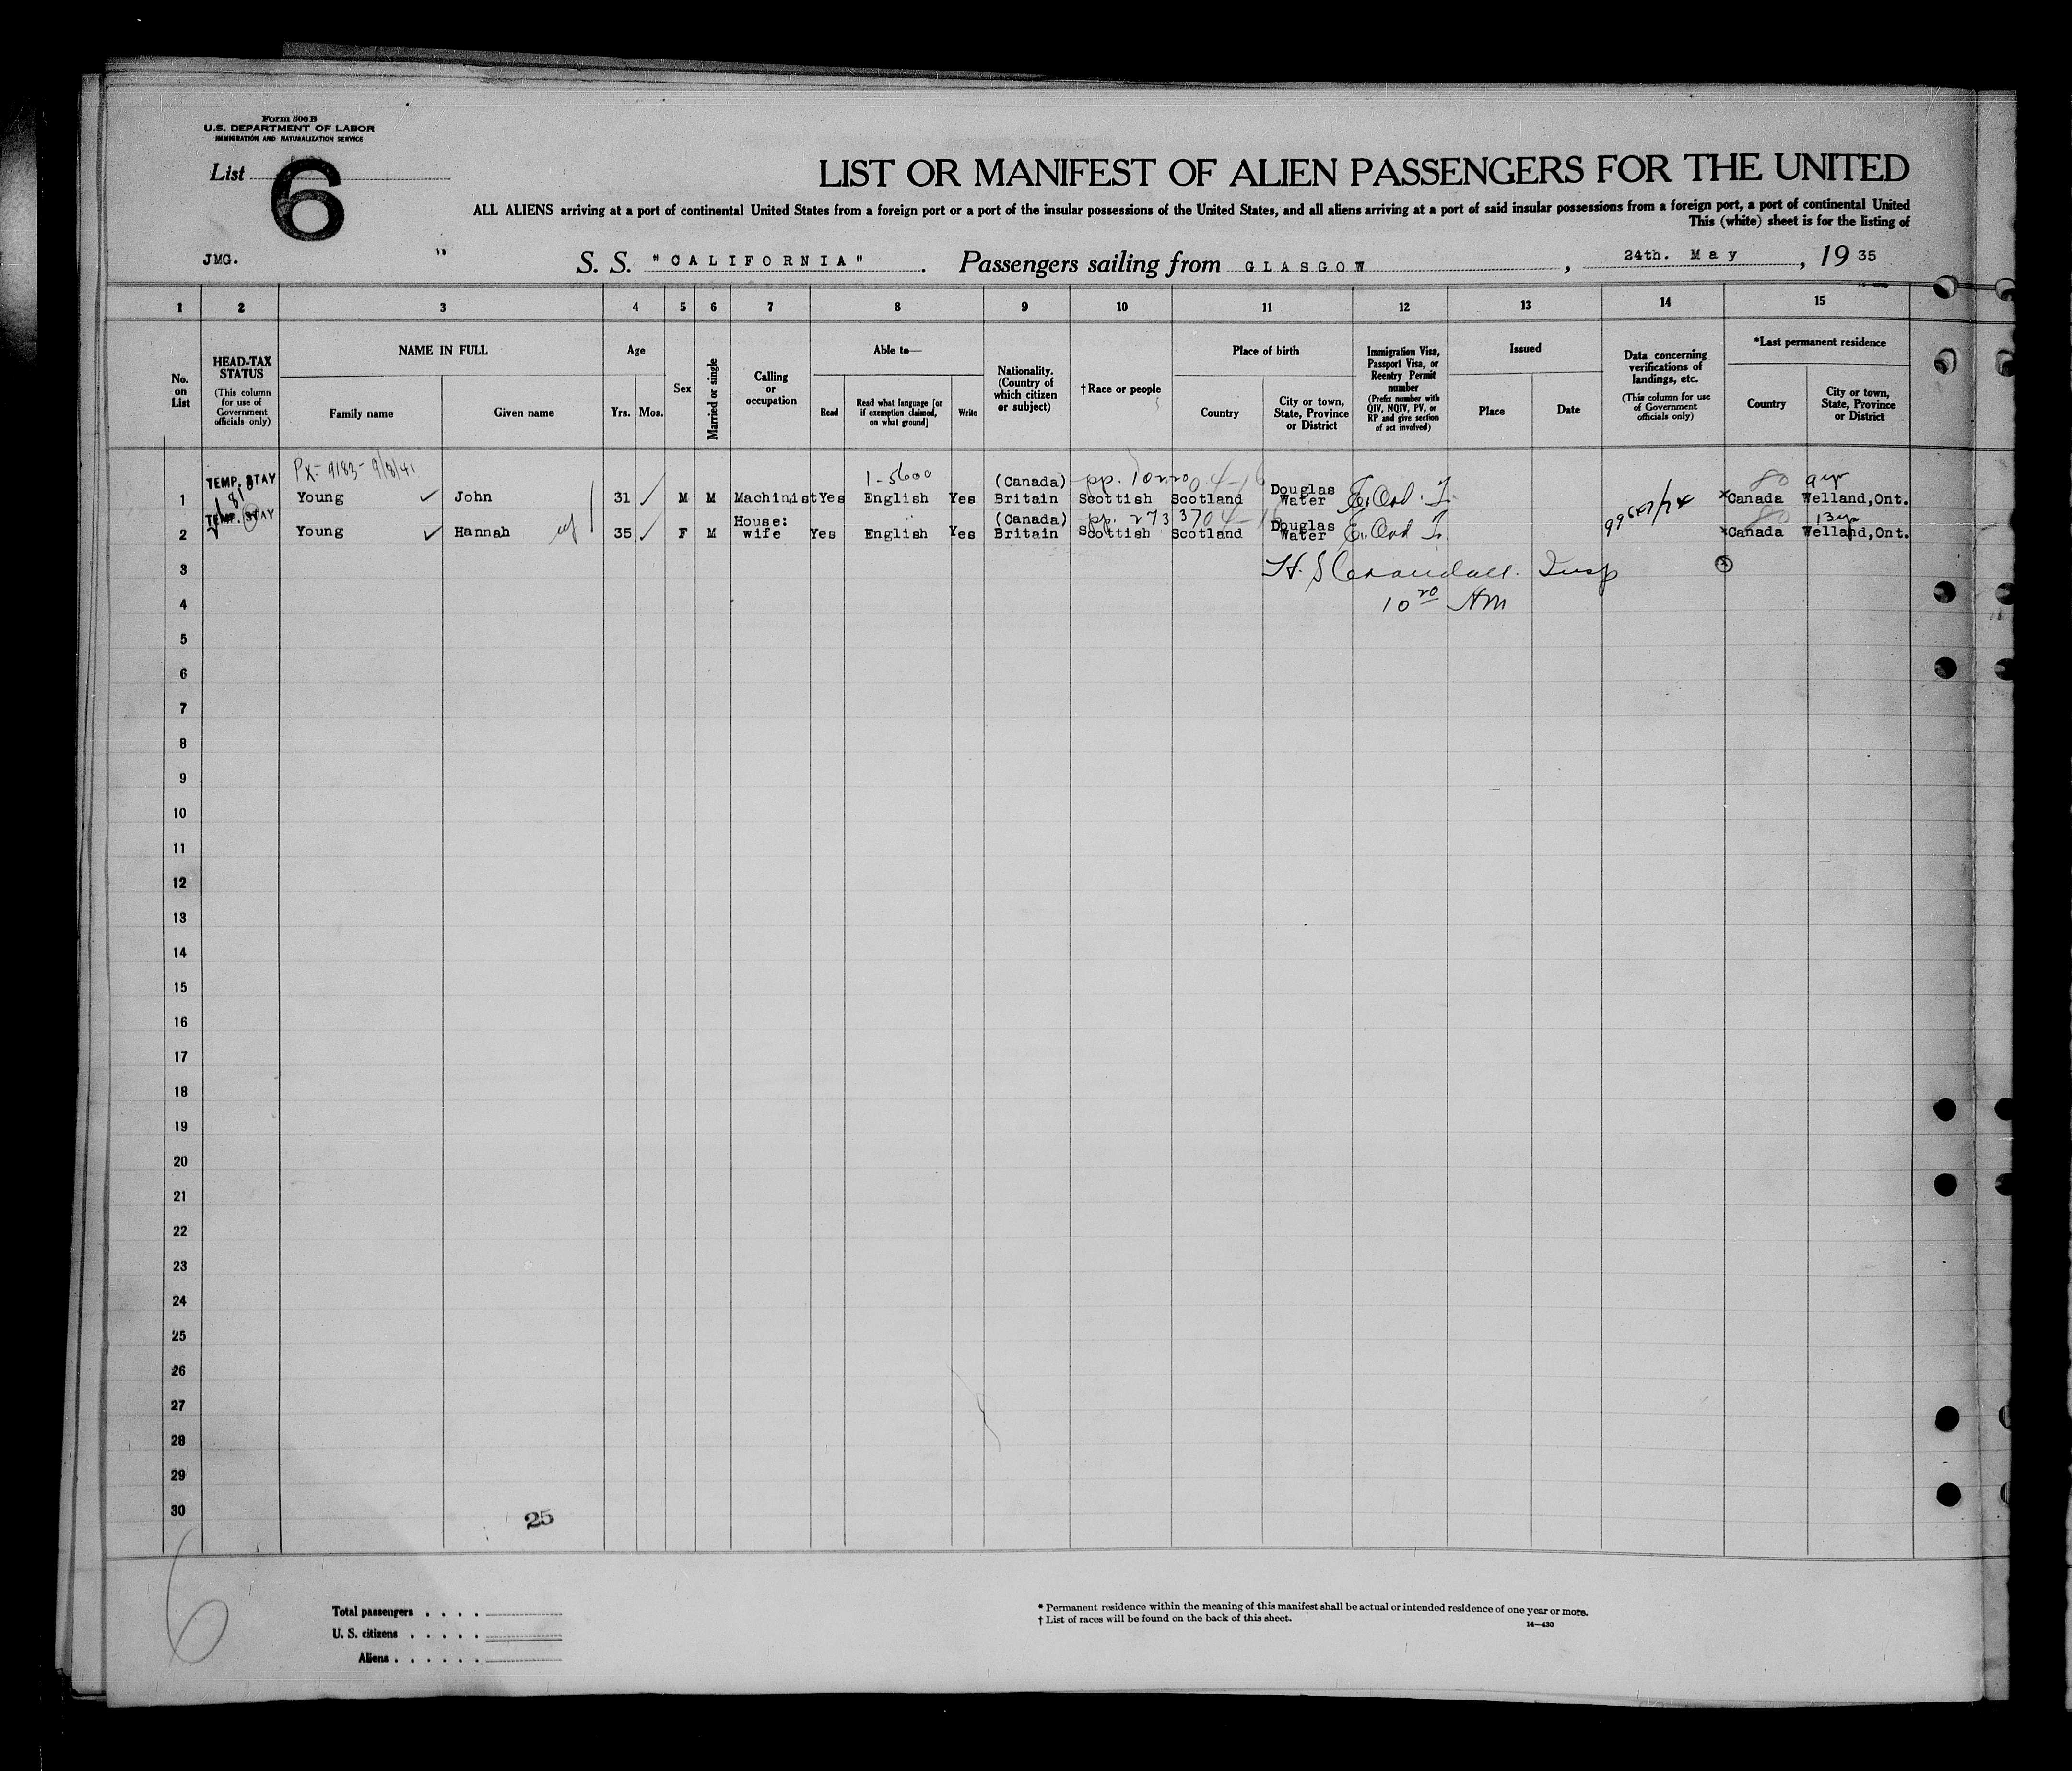 Form 500B
U.S. DEPARTMENT OF LABOR
IMMIGRATION AND NATURALIZATION SERVICE
List 6
LIST OR MANIFEST OF ALIEN PASSENGERS FOR THE UNITED
ALL ALIENS arriving at a port of continental United States from a foreign port or a port of the insular possessions of the United States, and all aliens arriving at a port of said insular possessions from a foreign port, a port of continental United
This (white) sheet is for the listing of
JMG.
S. S. "CALIFORNIA" . Passengers sailing from GLASGOW , 24th. May , 19 35
1 2 3 4 5 6 7 8 9 10 11 12 13 14 15
No. on List
HEAD-TAX STATUS
(This column for use of Government officials only)
NAME IN FULL
Family name Given name
Age
Yrs. Mos.
Sex
Married or single
Calling or occupation
Able to—
Read
Read what language [or if exemption claimed, on what ground]
Write
Nationality. (Country of which citizen or subject)
†Race or people
Place of birth
Country
City or town, State, Province or District
Immigration Visa, Passport Visa, or Reentry Permit number
(Prefix number with QIV, NQIV, PV, or RP and give section of act involved)
Issued
Place Date
Data concerning verifications of landings, etc.
(This column for use of Government officials only)
*Last permanent residence
Country
City or town, State, Province or District
TEMP. STAY Px- 9183- 9/8/41 1-5600 (Canada) 80 9 yr
1 Young John 31 M M Machinist Yes English Yes Britain Scottish Scotland Douglas Water xCanada Welland, Ont.
TEMP. STAY (Canada) pp. 273370 80 13 yr
2 Young Hannah wf 35 F M House: wife Yes English Yes Britain Scottish Scotland Douglas Water xCanada Welland, Ont.
3 H. S Crandall. Insp
4 10 20 AM
5
6
7
8
9
10
11
12
13
14
15
16
17
18
19
20
21
22
23
24
25
26
27
28
29
30
25
6
Total passengers . . . .
U. S. citizens . . . . .
Aliens . . . . . .
* Permanent residence within the meaning of this manifest shall be actual or intended residence of one year or more.
† List of races will be found on the back of this sheet.
14—430